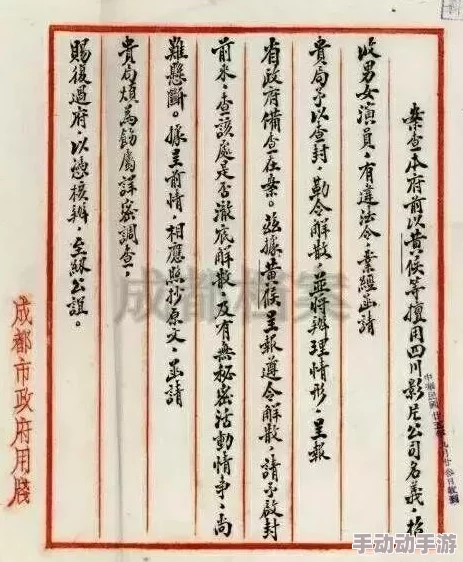 案查本府前以黄侯等擅用四川影片公司名義，招
收男女演員，有違法令，業經函請
貴局予以查封，勒令解散，並将辦理情形，呈報
省政府備查在案。兹據黄侯呈報遵令解散，請予啟封
前来，查該處是否澈底解散，及有無秘密活動情事，尚
難懸斷。據呈前情，相應照抄原文，函請
貴局煩為飭屬詳密調查，
賜復過府，以憑核辦，至紉公誼。
成都市政府用牋
成都档案
手动动手游